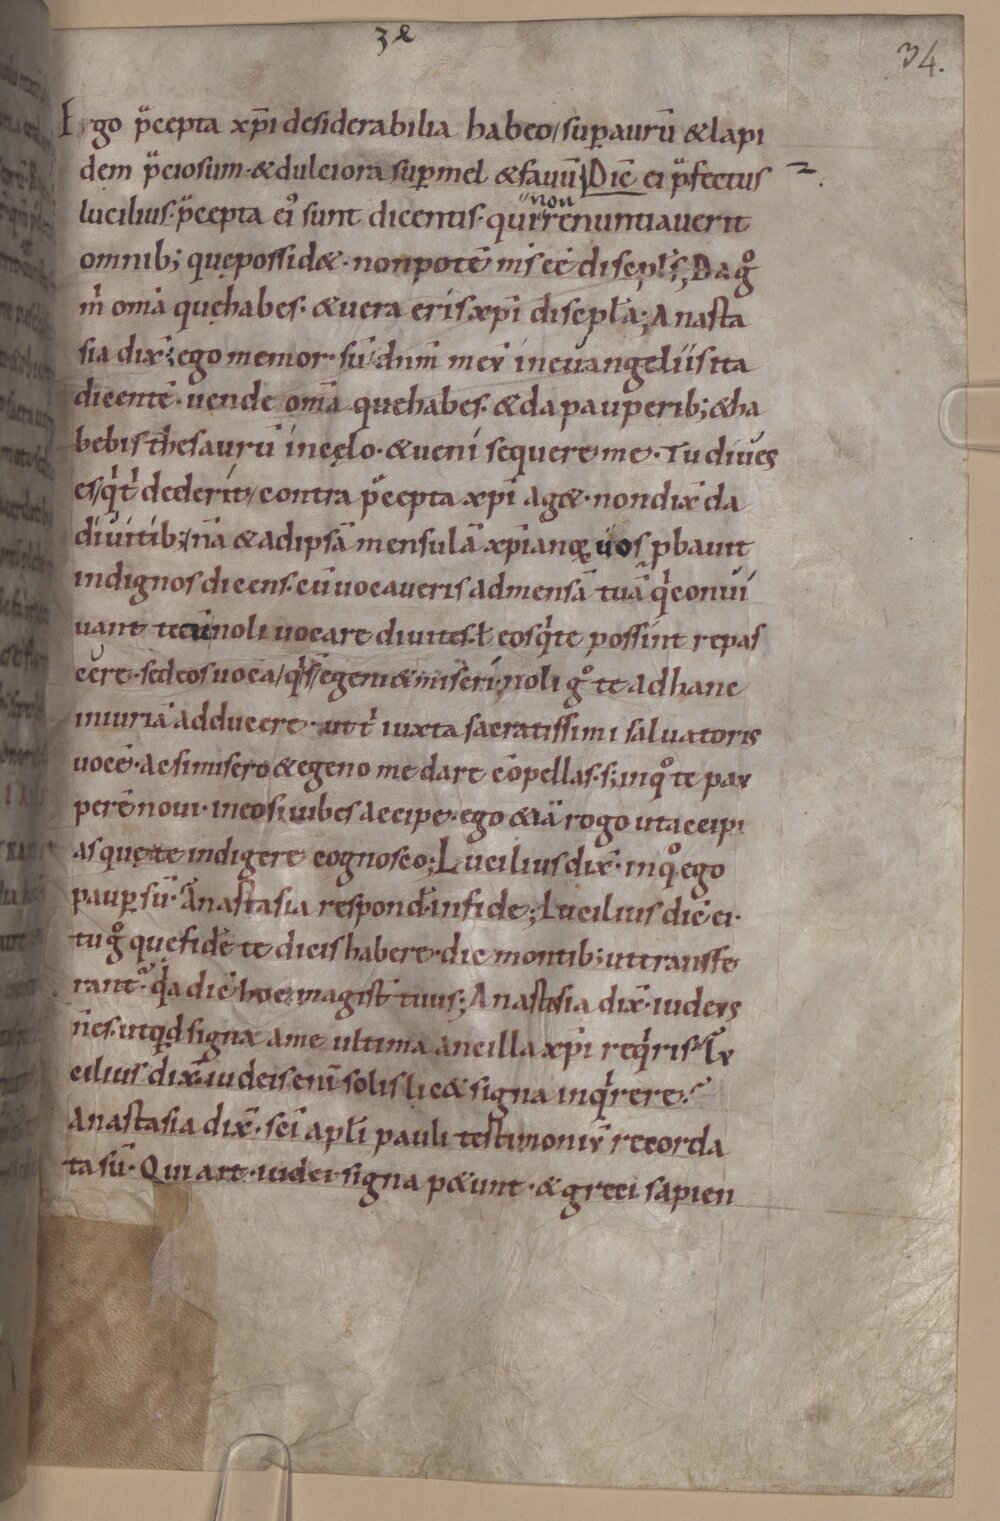 ze
34.
Ergo p̃cepta xp̄i desiderabilia habeo, sup aurū & lapi
dem p̃ciosum · & dulciora sup mel & fauū Dic̄ ei p̃fectus
lucilius · p̃cepta ei᷒ sunt dicentis · qui non renuntiauerit
omnib; quę possid& · non potē m̄s ēe discipl̄s; Da gͦ
m̄ om̄a quę habes · & uera eris xp̄i discipl̄a; Anasta
sia dix̄; ego memor sū dn̄m meū in euangeliis ita
dicentē · uende om̄a quę habes · & da pauperib; & ha
bebis thesaurū in cęlo · & ueni sequere me · Tu diues
es, qͥ tͥ dederit, contra p̃cepta xp̄i ag& · non dix̄ da
diuitib; nā & ad ipsā mensulā xp̄ianoꝝ uos ꝓbauit
indignos dicens · cū uocaueris ad mensā tuā qͥ conui
uant tecū noli uocare diuites · ł eos qͥ te possint repas
cere · sed eos uoca, qͥ s̄ egeni & miseri; noli gͦ te ad hanc
iniuriā adducere · ut tͥ iuxta sacratissimi saluatoris
uocē · ac si misero & egeno me dare cōpellas · s; in qͦ te pau
perē noui · in eo si iubes accipe · ego & iā rogo ut accipi
as quę te indigere cognosco; Lucilius dix̄ · in qͦ ego
paup sū · Anastasia respond̄ · in fide; Lucilius dic̄ ei ·
tu gͦ quę fidē te dicis habere · dic montib; ut transfe
rant̃ · qͥa dic̄ hoc magist̄ tuus; Anastasia dix̄ · iudeus
n̄ es · ut qd signa a me ultima ancilla xp̄i reqͥris? Lu
cilius dix̄ · iudeis eni solis lic& signa inqͥrere?
Anastasia dix̄ · sc̄i apl̄i pauli testimoniū recorda
ta sū · Qui ait · iudei signa p&unt · & greci sapien